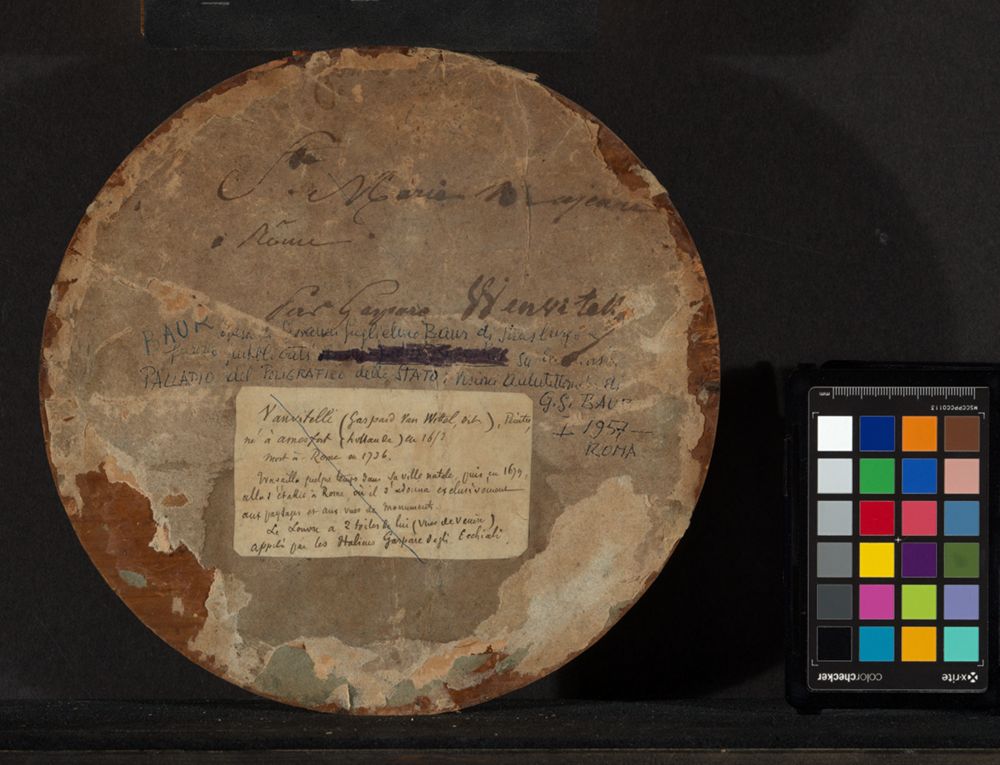 Ste Marie Majeure
à Rome
Par Gaspare Wenvitelli
BAUR opera di Giovanni Guglielmo Baur di Strasburgo
PALLADIO del POLIGRAFICO dello STATO,
G.G. BAUR
1957
ROMA
Vanvitelli (Gaspard Van Wittel, dit), Peintre,
né à amersfort (hollande) en 16
mort à Rome en 1736.
Travailla quelque temps dans sa ville natale, puis, en 1679,
alla s'établir à Rome, où il s'adonna exclusivement
aux paysages et aux vues de monuments.
Le Louvre a 2 toiles de lui (Vues de Venise)
appelé par les Italiens Gaspare degli Occhiali.
mm
MSCCPPCC0113
colorchecker
x-rite